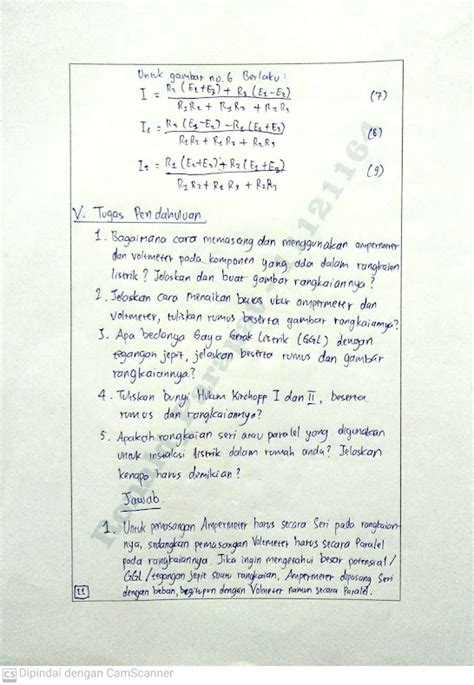 Untuk gambar no. 6 Berlaku :
I = R2 (E1+E3) + R3 (E1-E2) (7)
R1R2 + R1R3 + R2R3
(8)
R1R2 + R1R3 + R2R3
(9)
R1R2 + R1R3 + R2R3
V. Tugas Pendahuluan
1. Bagaimana cara memasang dan menggunakan ampermeter
dan voltmeter pada komponen yang ada dalam rangkaian
listrik ? Jelaskan dan buat gambar rangkaiannya ?
2. Jelaskan cara menaikan batas ukur ampermeter dan
voltmeter, tuliskan rumus beserta gambar rangkaiannya?
3. Apa bedanya Gaya Gerak Listrik (GGL) dengan
tegangan jepit, jelaskan beserta rumus dan gambar
rangkaiannya.?
4. Tuliskan bunyi Hukum Kirchopp I dan II, beserta
rumus dan rangkaiannya?
5. Apakah rangkaian seri atau paralel yang digunakan
untuk instalasi listrik dalam rumah anda? Jelaskan
kenapa harus demikian ?
Jawab
1. Untuk pemasangan Ampermeter harus secara Seri pada rangkaian-
nya, sedangkan pemasangan Voltmeter harus secara Paralel
pada rangkaiannya. Jika ingin mengetahui besar potensial /
GGL / tegangan jepit suatu rangkaian, Ampermeter dipasang Seri
dengan beban, begitupun dengan Voltmeter namun secara Paralel.
11
CS Dipindai dengan CamScanner